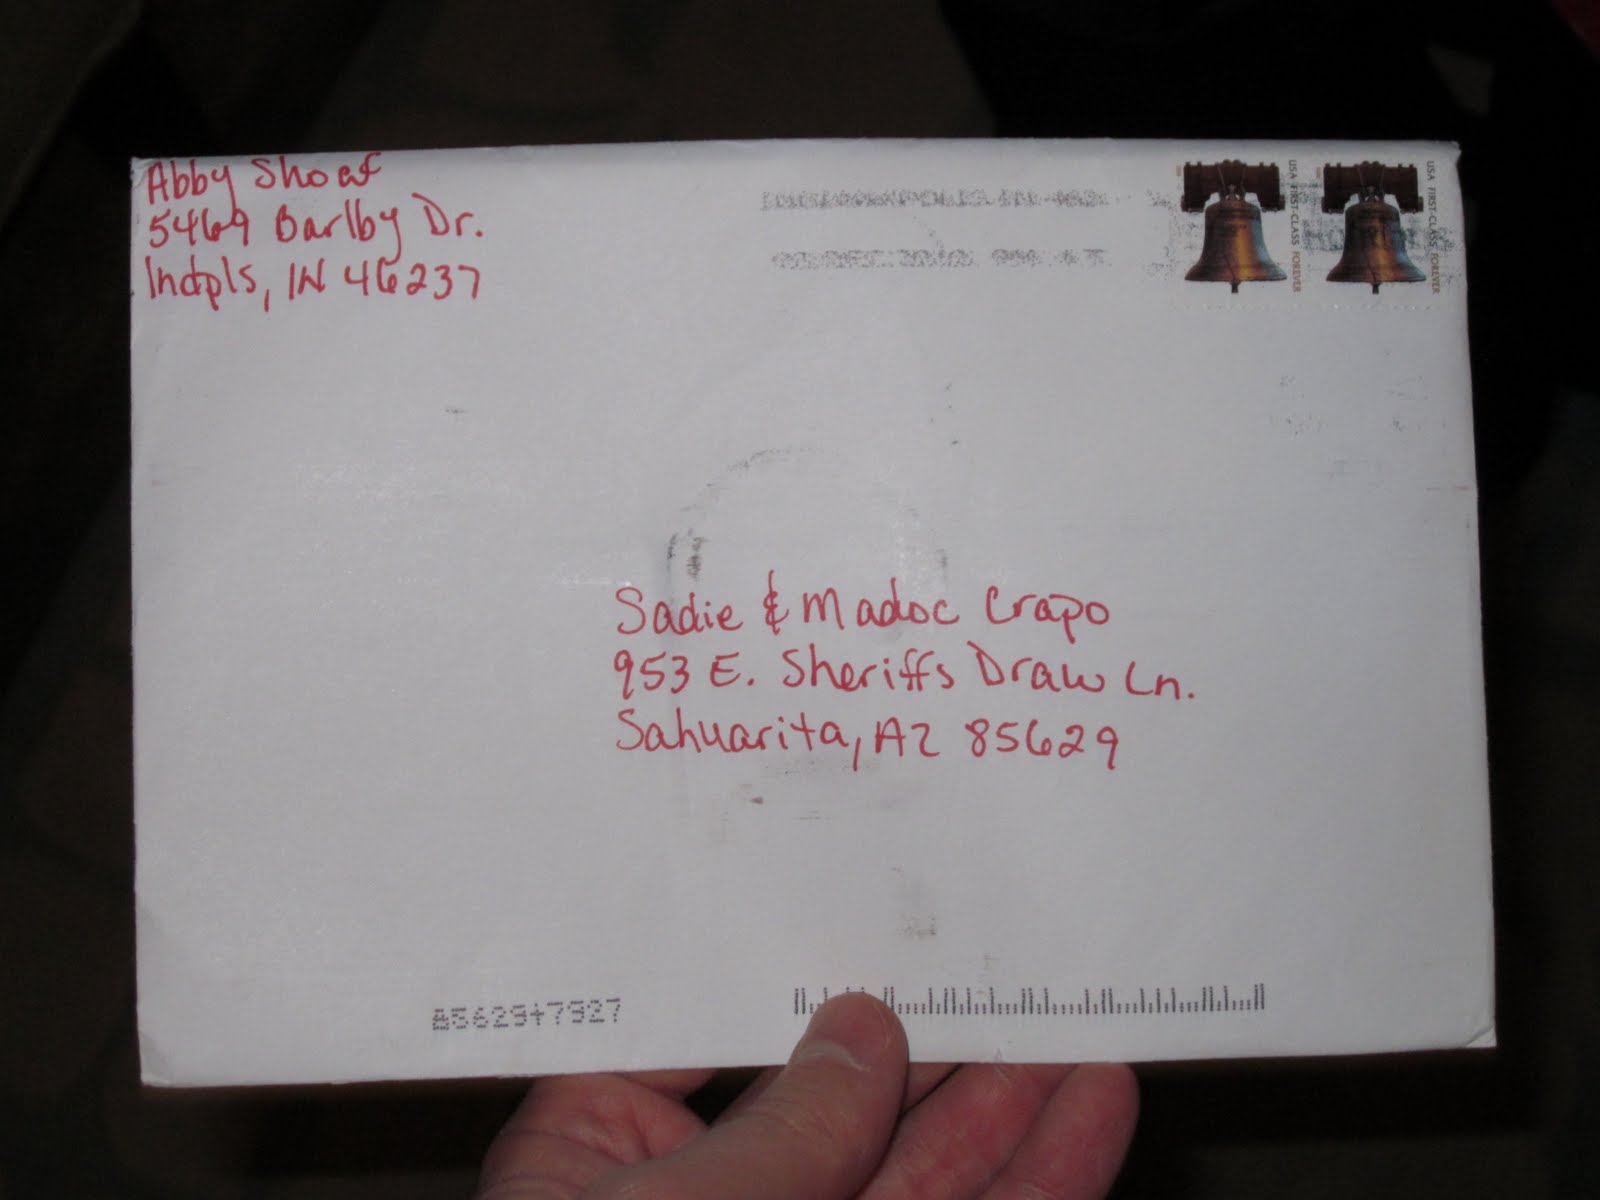 Abby Shoaf
5469 Barlby Dr.
Indpls, IN 46237
USA FIRST-CLASS FOREVER
USA FIRST-CLASS FOREVER
Sadie & Madoc Crapo
953 E. Sheriffs Draw Ln.
Sahuarita, AZ 85629
85629+7927